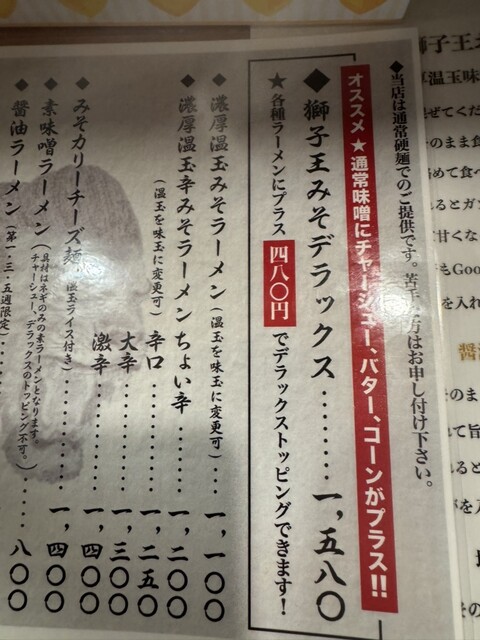 ◆当店は通常硬麺でのご提供です。苦手な方はお申し付け下さい。
オススメ★通常味噌にチャーシュー、バター、コーンがプラス!!
◆獅子王みそデラックス………一,五八〇
★各種ラーメンにプラス四八〇円でデラックストッピングできます!
◆濃厚温玉みそラーメン(温玉を味玉に変更可)…一,一〇〇
◆濃厚温玉辛みそラーメンちょい辛…一,二〇〇
(温玉を味玉に変更可)辛口………一,二五〇
大辛………一,三〇〇
激辛………一,四〇〇
◆みそカリーチーズ麺(温玉ライス付き)………一,四〇〇
◆素味噌ラーメン(具材はネギのみの素ラーメンとなります
チャーシュー、デラックスのトッピング不可。)……八〇〇
◆醤油ラーメン(第一・三・五週限定)
獅子王
厚温玉味
混ぜてくだ
のまま食
絡めて食べ
れるとガ
甘くな
もGoo
を入れ
醤
のま
れて旨
れると
を入